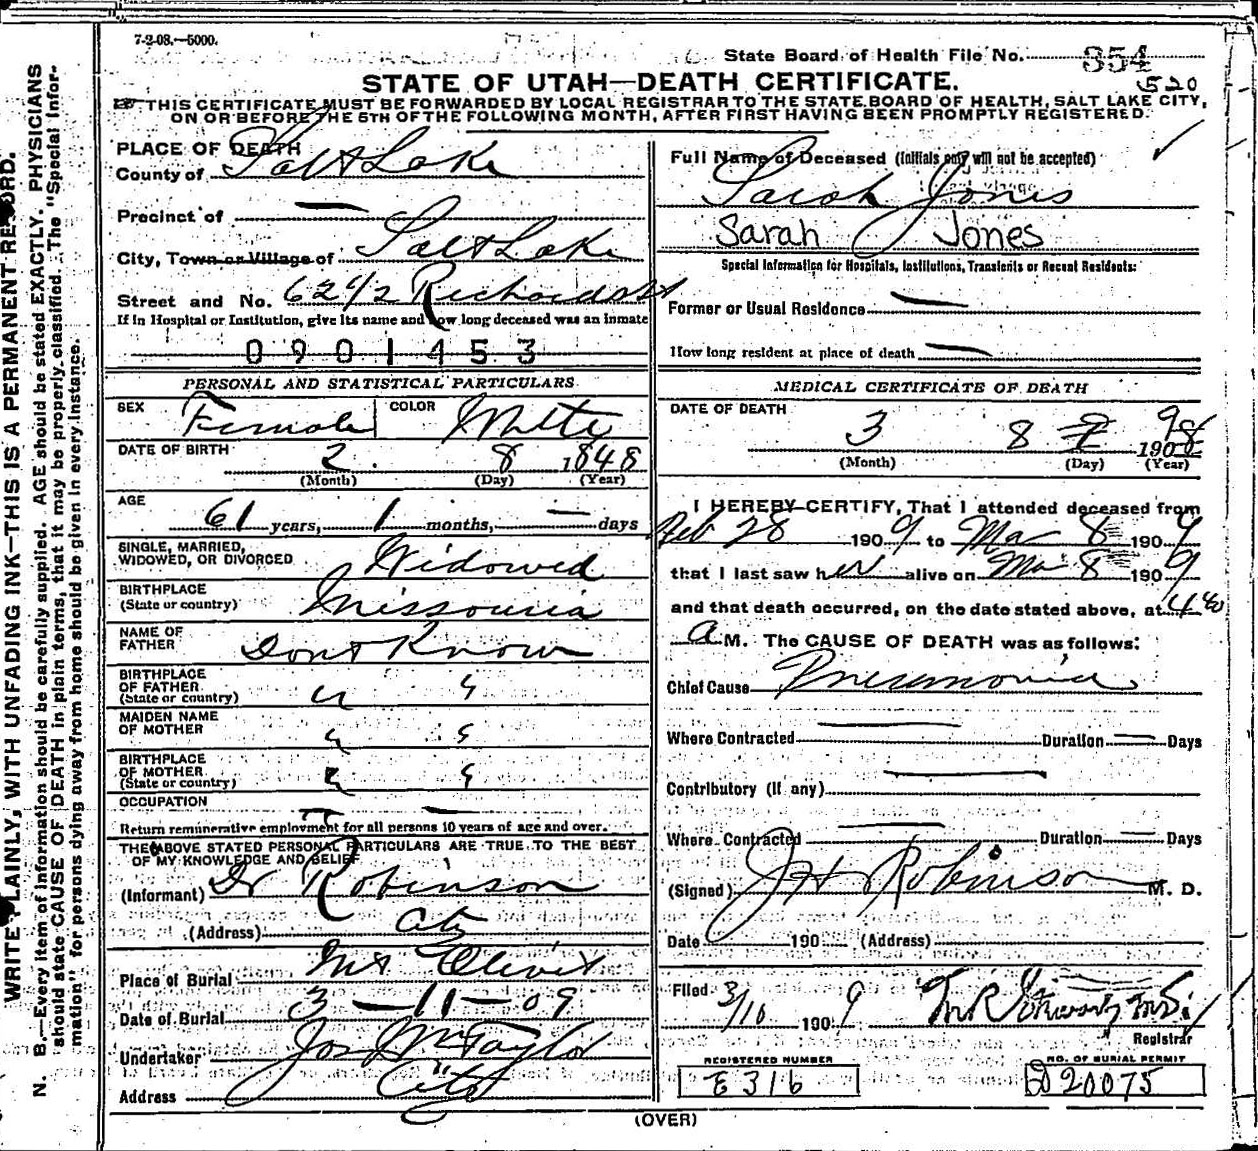 7-2-08.—5000.
State Board of Health File No. 354
520
STATE OF UTAH—DEATH CERTIFICATE.
THIS CERTIFICATE MUST BE FORWARDED BY LOCAL REGISTRAR TO THE STATE BOARD OF HEALTH, SALT LAKE CITY,
ON OR BEFORE THE 5TH OF THE FOLLOWING MONTH, AFTER FIRST HAVING BEEN PROMPTLY REGISTERED.
WRITE PLAINLY, WITH UNFADING INK—THIS IS A PERMANENT RECORD.
N. B.—Every item of information should be carefully supplied. AGE should be stated EXACTLY. PHYSICIANS
should state CAUSE OF DEATH in plain terms, that it may be properly classified. The "Special Infor-
mation" for persons dying away from home should be given in every instance.
PLACE OF DEATH
County of Salt Lake
Precinct of —
City, Town or Village of Salt Lake
Street and No. 62 1/2 Richards St
If in Hospital or Institution, give its name and how long deceased was an inmate
0901453
PERSONAL AND STATISTICAL PARTICULARS
SEX Female COLOR White
DATE OF BIRTH 2 8 1848
(Month) (Day) (Year)
AGE 61 years, 1 months, — days
SINGLE, MARRIED,
WIDOWED, OR DIVORCED Widowed
BIRTHPLACE
(State or country) Missouria
NAME OF
FATHER Dont Know
BIRTHPLACE
OF FATHER
(State or country) " "
MAIDEN NAME
OF MOTHER " "
BIRTHPLACE
OF MOTHER
(State or country) " "
OCCUPATION — —
Return remunerative employment for all persons 10 years of age and over.
THE ABOVE STATED PERSONAL PARTICULARS ARE TRUE TO THE BEST
OF MY KNOWLEDGE AND BELIEF
(Informant) Dr Robinson
(Address) City
Place of Burial Mt Olivet
Date of Burial 3—11—09
Undertaker Jos Wm Taylor
Address City
Full Name of Deceased (Initials only will not be accepted)
Sarah Jones
Sarah Jones
Special Information for Hospitals, Institutions, Transients or Recent Residents:
Former or Usual Residence —
How long resident at place of death —
MEDICAL CERTIFICATE OF DEATH
DATE OF DEATH 3 8 9 1908
(Month) (Day) (Year)
I HEREBY CERTIFY, That I attended deceased from
Feb 28 1909 to Mar 8 1909
that I last saw her alive on Mar 8 1909
and that death occurred, on the date stated above, at 4 40
a M. The CAUSE OF DEATH was as follows:
Chief Cause Pneumonia
Where Contracted — Duration — Days
Contributory (if any) —
Where Contracted — Duration — Days
(Signed) J H Robinson M. D.
Date 190 (Address)
Filed 3/10 1909
Registrar
REGISTERED NUMBER
E 316
NO. OF BURIAL PERMIT
D20075
(OVER)